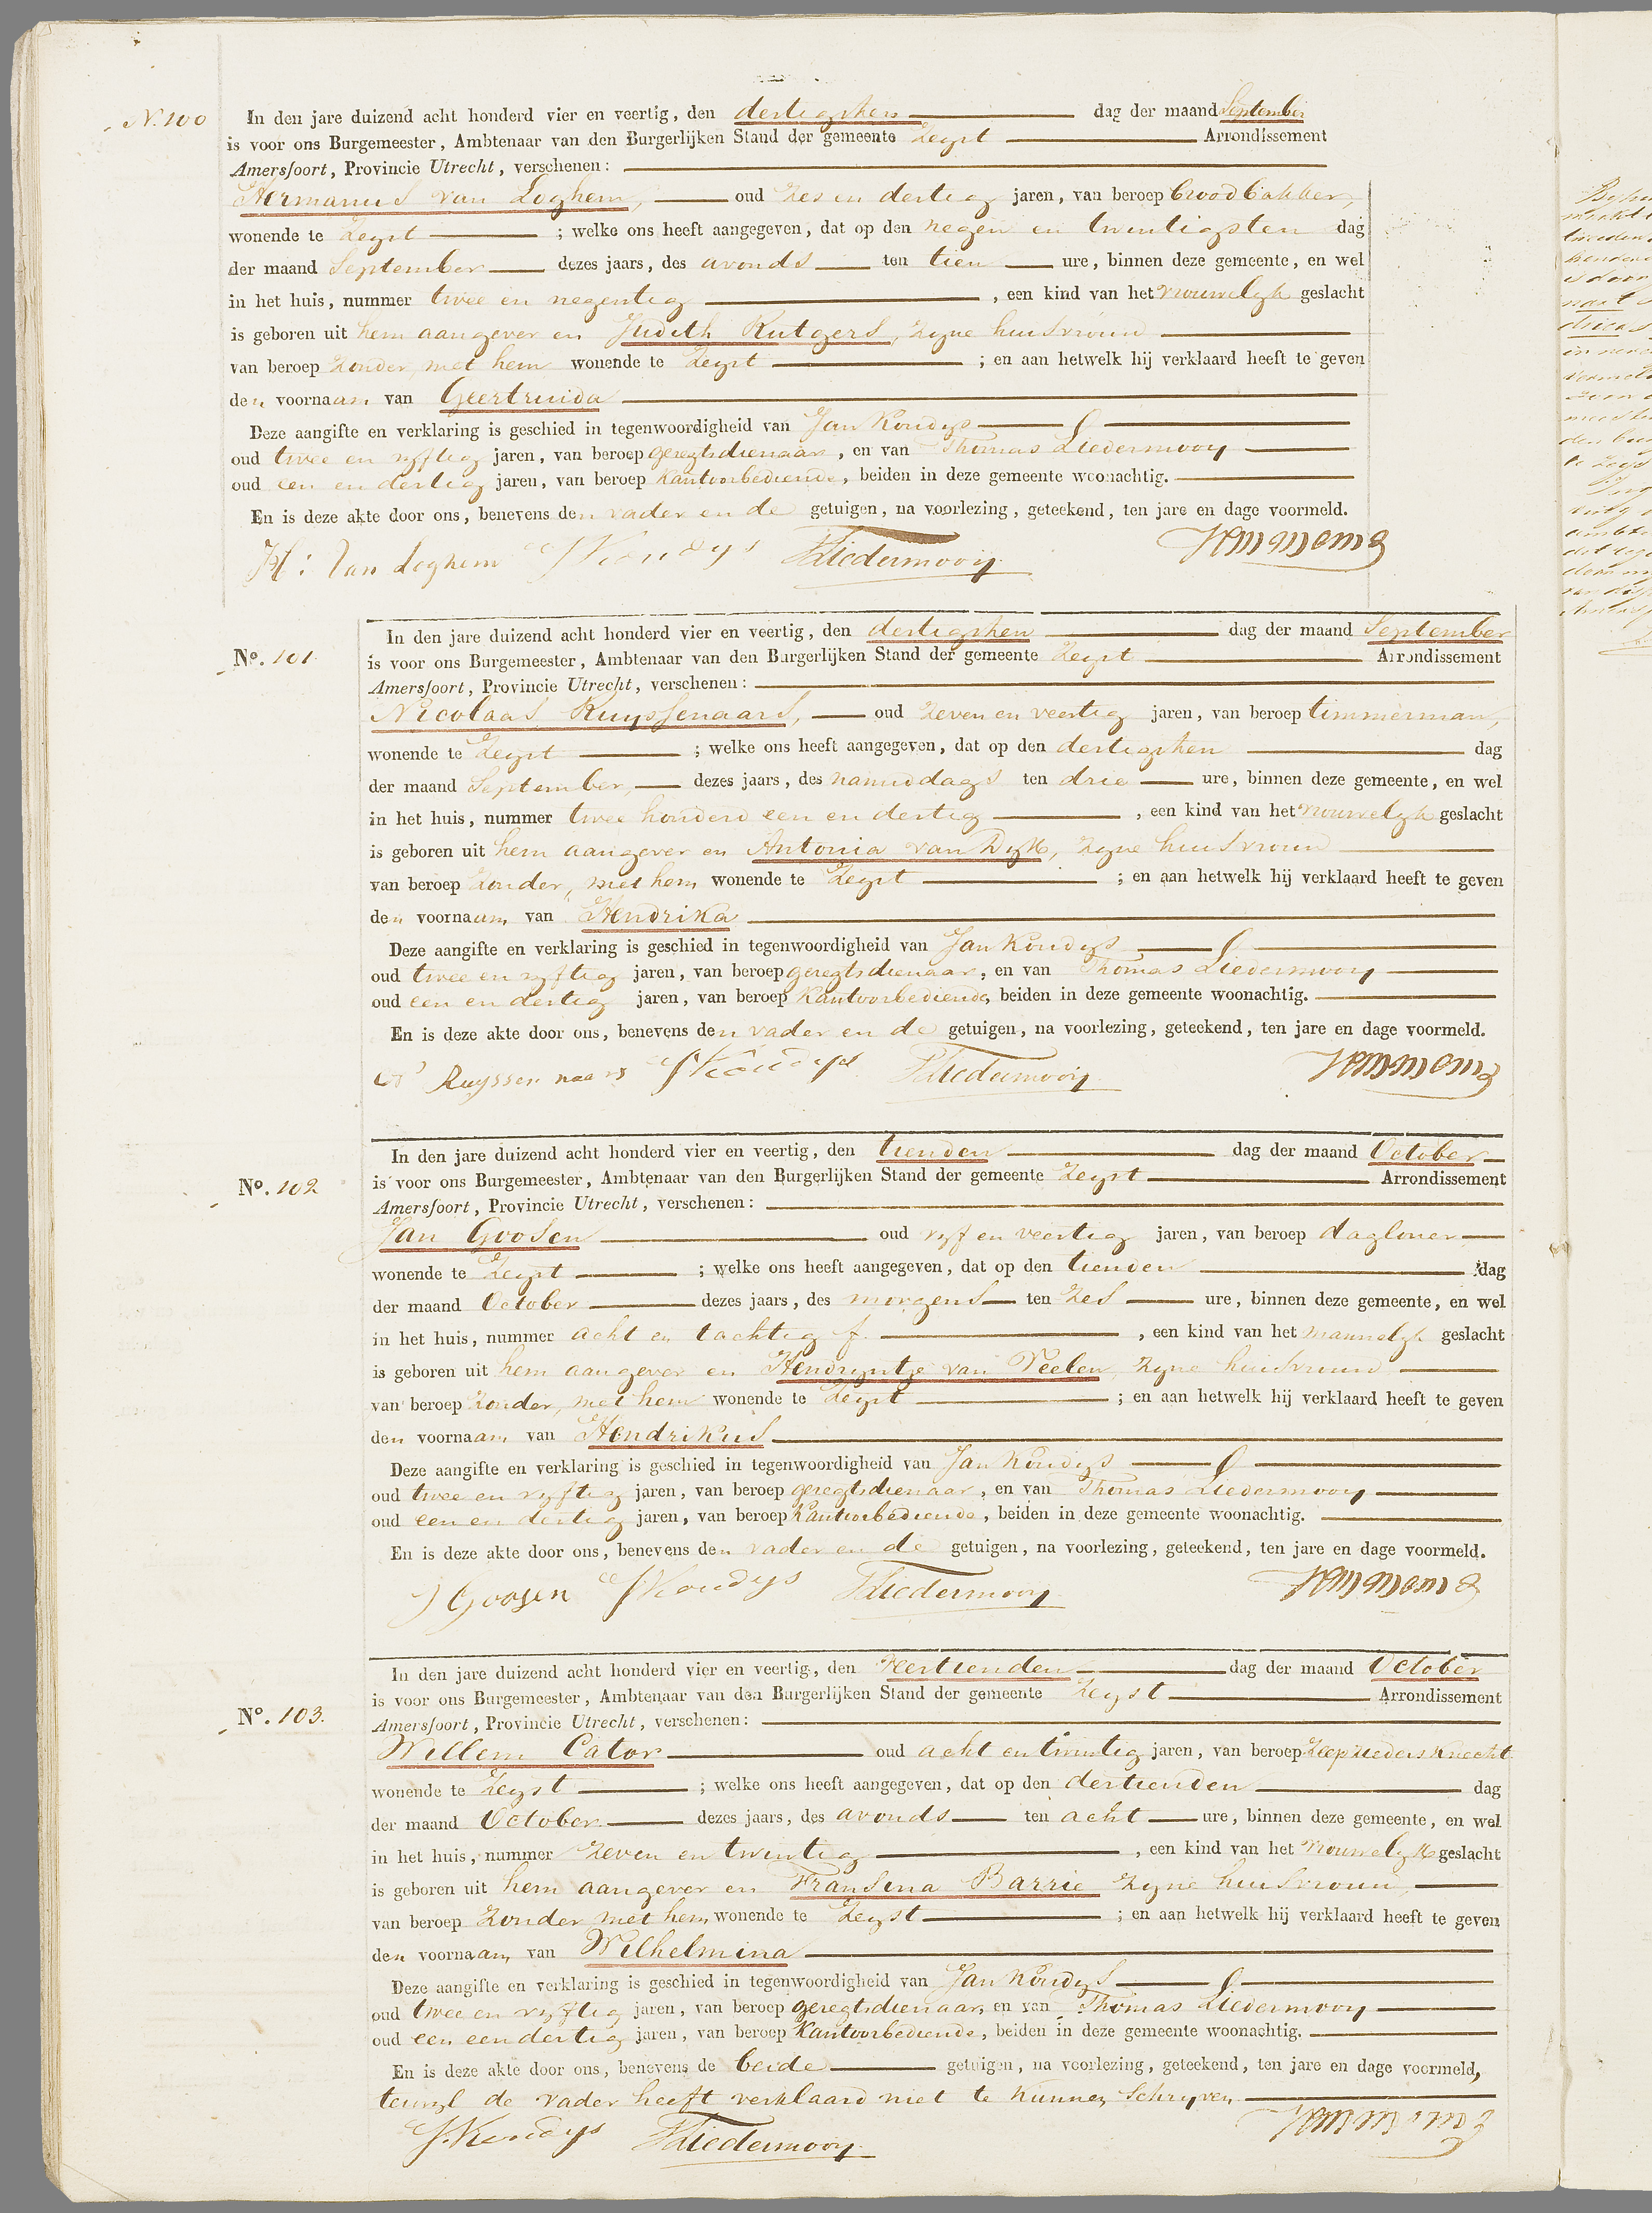 N. 100
In den jare duizend acht honderd vier en veertig, den dertigsten dag der maand September
is voor ons Burgemeester, Ambtenaar van den Burgerlijken Stand der gemeente Zeyst Arrondissement
Amersfoort, Provincie Utrecht, verschenen:
Hermanus van Loghem, oud zes en dertig jaren, van beroep broodbakker,
wonende te Zeyst ; welke ons heeft aangegeven, dat op den negen en twintigsten dag
der maand September dezes jaars, des avonds ten tien ure, binnen deze gemeente, en wel
in het huis, nummer twee en negentig , een kind van het vrouwelyk geslacht
is geboren uit hem aangever en Judith Rutgers, zyne huisvrouw
van beroep zonder, met hem wonende te Zeyst ; en aan hetwelk hij verklaard heeft te geven
den voornaam van Geertruida
Deze aangifte en verklaring is geschied in tegenwoordigheid van Jan Koudys
oud twee en vyftig jaren, van beroep geregtsdienaar, en van Thomas Liedermooy
oud een en dertig jaren, van beroep Kantoorbediende, beiden in deze gemeente woonachtig.
En is deze akte door ons, benevens den vader en de getuigen, na voorlezing, geteekend, ten jare en dage voormeld.
H: van Loghem J Koudys T Liedermooij
No. 101
In den jare duizend acht honderd vier en veertig, den dertigsten dag der maand September
is voor ons Burgemeester, Ambtenaar van den Burgerlijken Stand der gemeente Zeyst Arrondissement
Amersfoort, Provincie Utrecht, verschenen:
Nicolaas Ruyssenaars, oud zeven en veertig jaren, van beroep timmerman,
wonende te Zeyst ; welke ons heeft aangegeven, dat op den dertigsten dag
der maand September, dezes jaars, des namiddags ten drie ure, binnen deze gemeente, en wel
in het huis, nummer twee honderd een en dertig , een kind van het vrouwelyk geslacht
is geboren uit hem aangever en Antonia van Dyk, zyne huisvrouw
van beroep zonder, met hem wonende te Zeyst ; en aan hetwelk hij verklaard heeft te geven
den voornaam van Hendrika
Deze aangifte en verklaring is geschied in tegenwoordigheid van Jan Koudys
oud twee en vyftig jaren, van beroep geregtsdienaar, en van Thomas Liedermooy
oud een en dertig jaren, van beroep Kantoorbediende, beiden in deze gemeente woonachtig.
En is deze akte door ons, benevens den vader en de getuigen, na voorlezing, geteekend, ten jare en dage voormeld.
Ruyssennaars J Koudys T Liedermooij
No. 102
In den jare duizend acht honderd vier en veertig, den tienden dag der maand October
is voor ons Burgemeester, Ambtenaar van den Burgerlijken Stand der gemeente Zeyst Arrondissement
Amersfoort, Provincie Utrecht, verschenen:
Jan Goosen oud vyf en veertig jaren, van beroep dagloner
wonende te Zeyst ; welke ons heeft aangegeven, dat op den tienden dag
der maand October dezes jaars, des morgens ten zes ure, binnen deze gemeente, en wel
in het huis, nummer acht en tachtig f. , een kind van het mannelyk geslacht
is geboren uit hem aangever en Hendryntje van Veelen, zyne huisvrouw
van beroep zonder, met hem wonende te Zeyst ; en aan hetwelk hij verklaard heeft te geven
den voornaam van Hendrikus
Deze aangifte en verklaring is geschied in tegenwoordigheid van Jan Koudys
oud twee en vyftig jaren, van beroep geregtsdienaar, en van Thomas Liedermooy
oud een en dertig jaren, van beroep Kantoorbediende, beiden in deze gemeente woonachtig.
En is deze akte door ons, benevens den vader en de getuigen, na voorlezing, geteekend, ten jare en dage voormeld.
J Goosen J Koudys T Liedermooij
No. 103.
In den jare duizend acht honderd vier en veertig, den veertienden dag der maand October
is voor ons Burgemeester, Ambtenaar van den Burgerlijken Stand der gemeente Zeyst Arrondissement
Amersfoort, Provincie Utrecht, verschenen:
Willem Cator oud acht en twintig jaren, van beroep zeepzieders knecht
wonende te Zeyst ; welke ons heeft aangegeven, dat op den dertienden dag
der maand October dezes jaars, des avonds ten acht ure, binnen deze gemeente, en wel
in het huis, nummer zeven en twintig , een kind van het vrouwelyk geslacht
is geboren uit hem aangever en Fransina Barrie zyne huisvrouw,
van beroep zonder met hem wonende te Zeyst ; en aan hetwelk hij verklaard heeft te geven
den voornaam van Wilhelmina
Deze aangifte en verklaring is geschied in tegenwoordigheid van Jan Koudys
oud twee en vyftig jaren, van beroep geregtsdienaar, en van Thomas Liedermooy
oud een en dertig jaren, van beroep Kantoorbediende, beiden in deze gemeente woonachtig.
En is deze akte door ons, benevens de beide getuigen, na voorlezing, geteekend, ten jare en dage voormeld,
terwyl de vader heeft verklaard niet te kunnen schryven
J. Koudys T Liedermooij